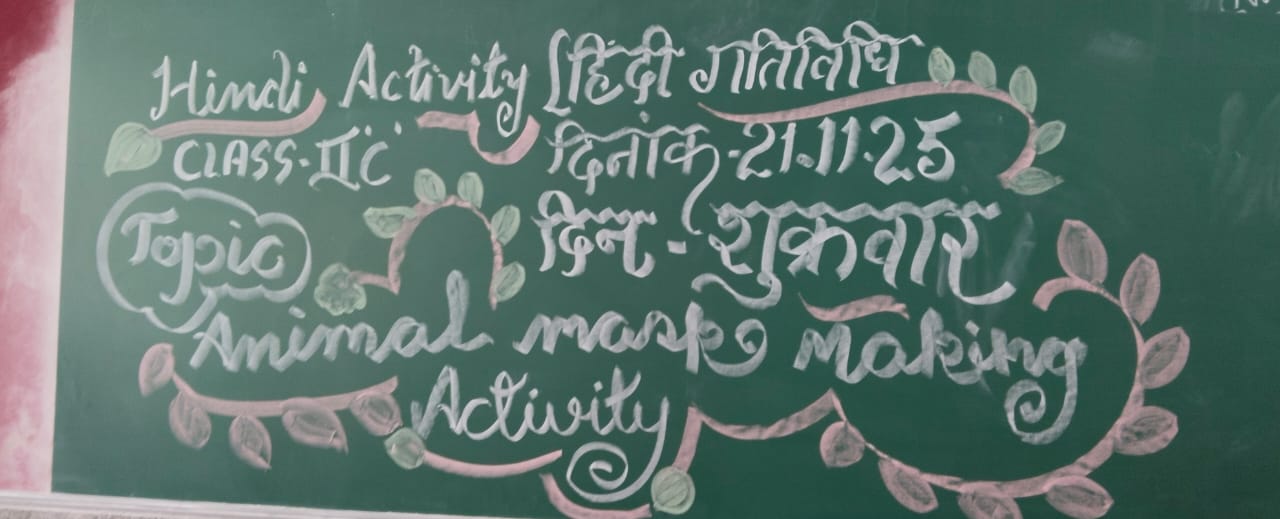 Hindi Activity [हिंदी गतिविधि
CLASS-II'C' दिनांक-21.11.25
Topic दिन - शुक्रवार
Animal mask Making
Activity